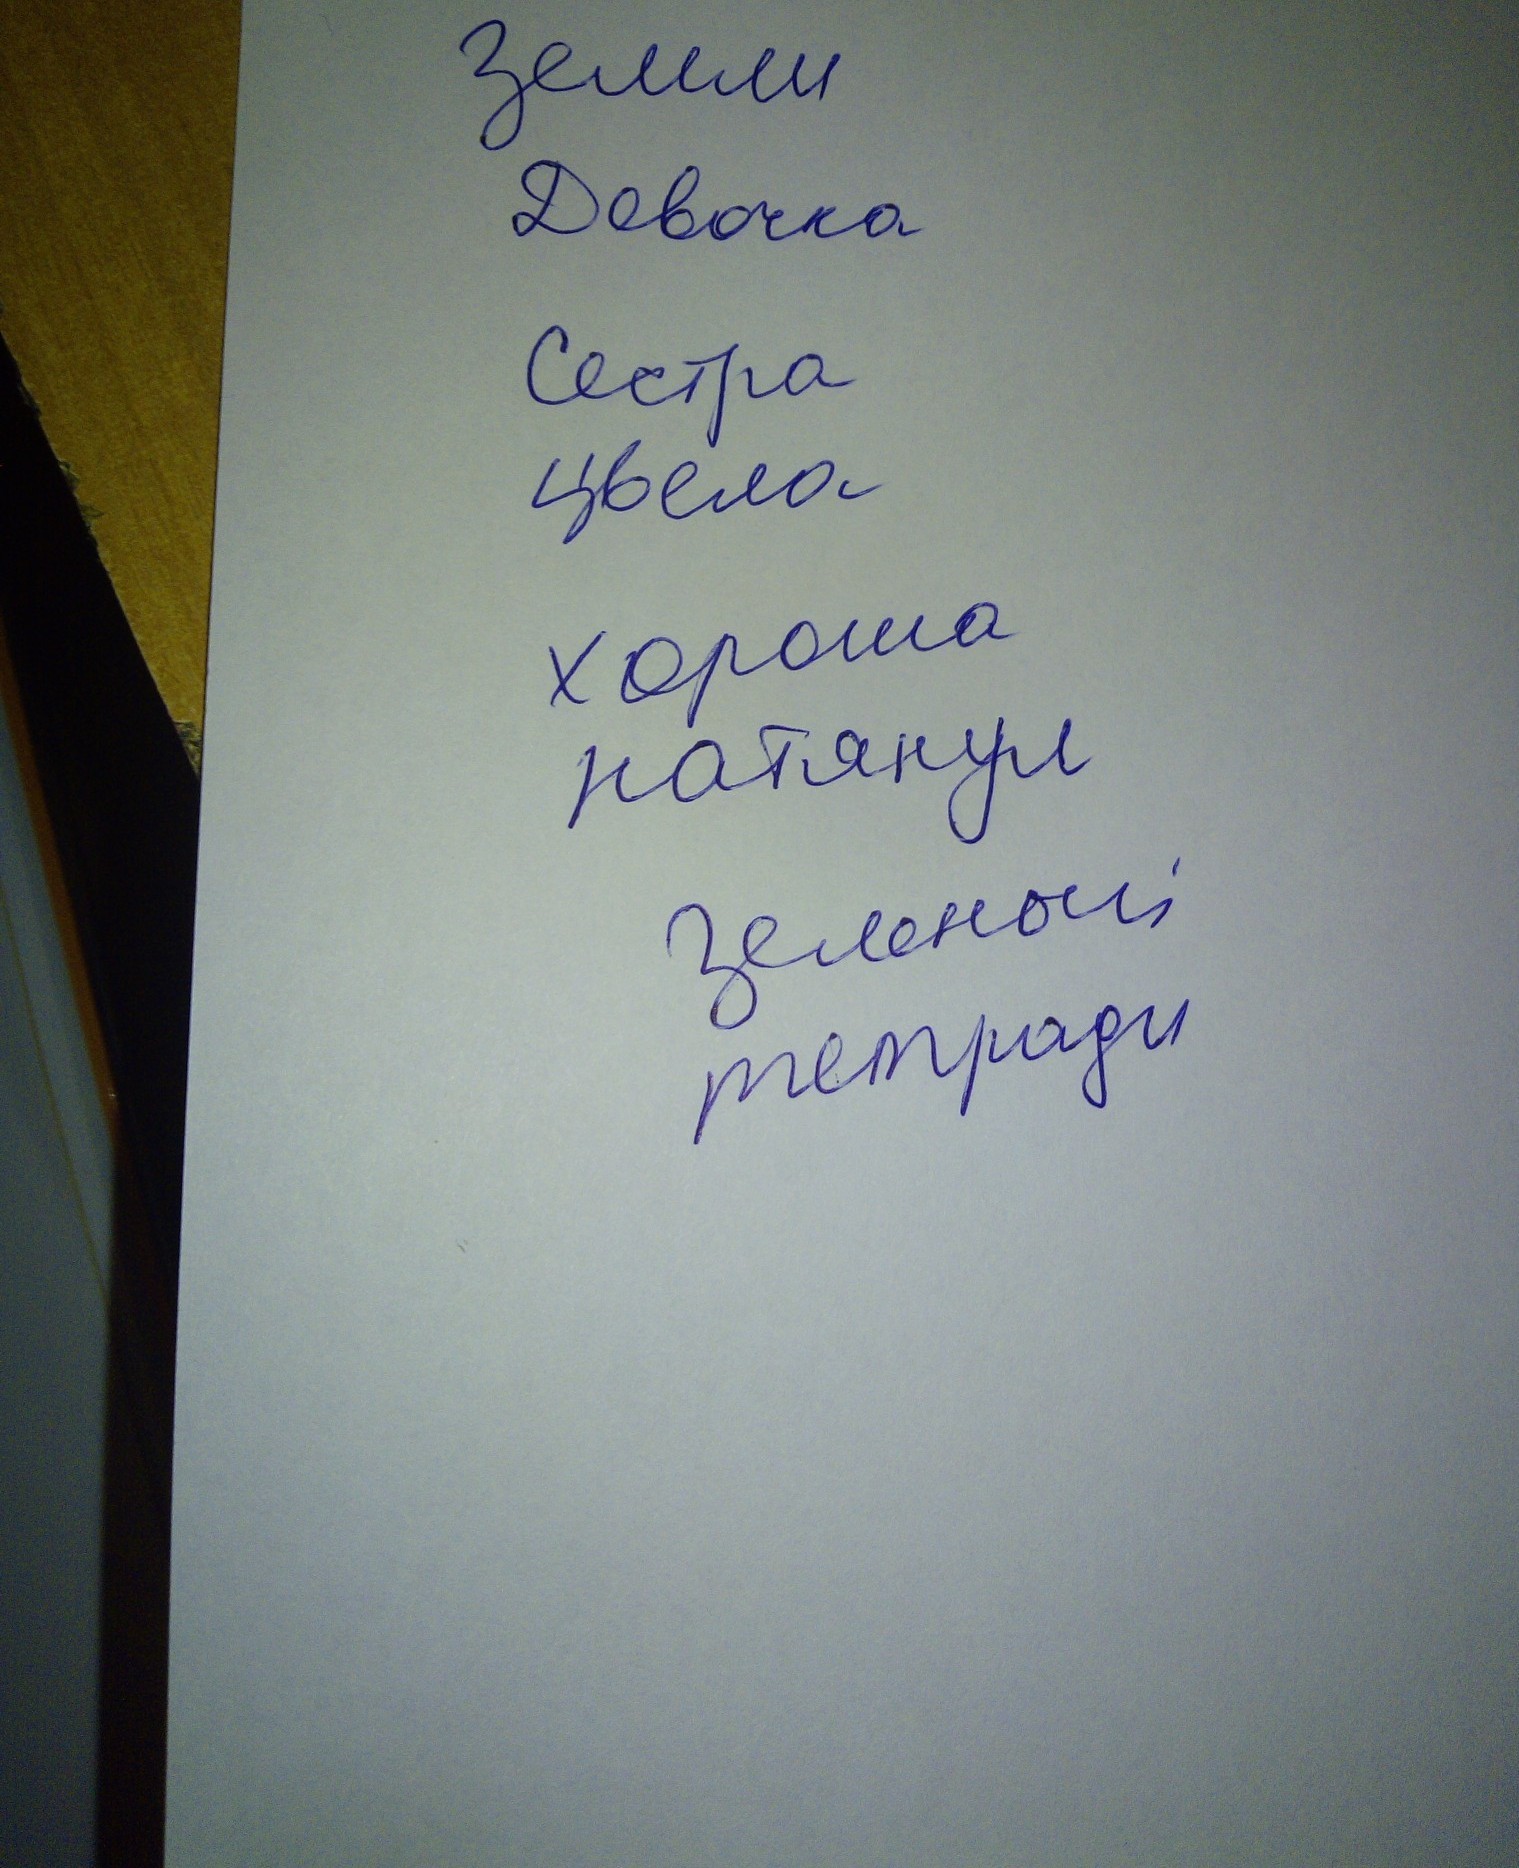 Земли
Девочка
Сестра
цвела
хороша
натянул
Зеленый
тетради